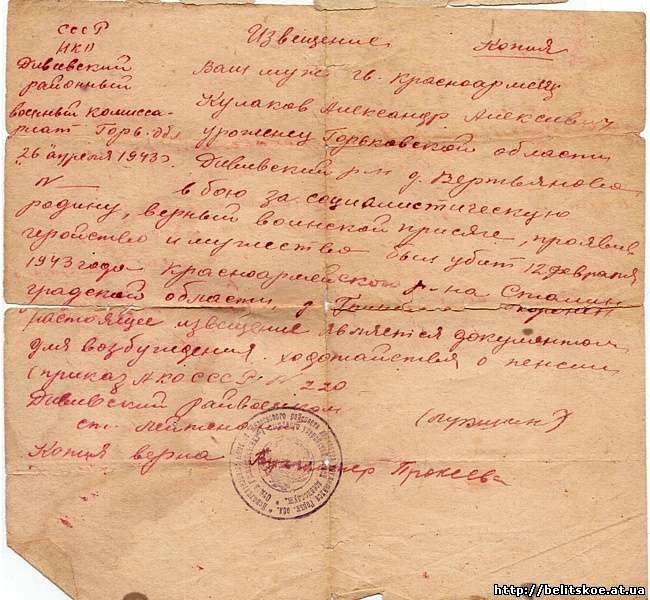 СССР
НКО
Дивеевский
районный
военный комисса-
риат Горьк. обл
26 апреля 1943г.
N
Извещение Копия
Ваш муж гв. красноармеец
Кулаков Александр Алексеевич
уроженец Горьковской области
Дивеевский р-н д. Вертьяново
в бою за социалистическую
родину, верный воинской присяге, проявив
геройство и мужество был убит 12 февраля
1943 года Красноармейской р-на Сталин
градской области, д.
настоящее извещение является документом
для возбуждения ходотайствя о пенсии
(приказ НКО СССР N 220
Дивеевский райвоенком
ст. лейтенант
Копия верна Прокеева
http://belitskoe.at.ua